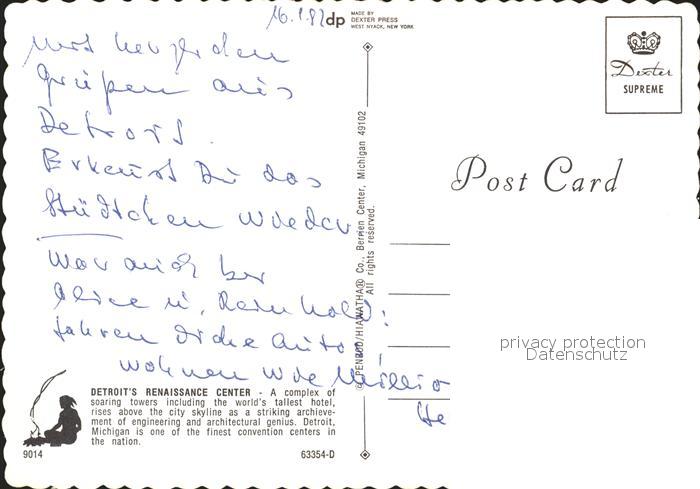 16.1.82
dp
MADE BY
DEXTER PRESS
WEST NYACK, NEW YORK
Mit herzlichen
Grüßen aus
Detroit.
Erkennst Du das
Städtchen wieder
War auch bei
Alice u. Reinhold:
fahren dicke Autos
wohnen wie Millio
He
Dexter
SUPREME
Post Card
© PENROD/HIAWATHA® Co., Berrien Center, Michigan 49102
All rights reserved.
privacy protection
Datenschutz
DETROIT'S RENAISSANCE CENTER - A complex of
soaring towers including the world's tallest hotel,
rises above the city skyline as a striking achieve-
ment of engineering and architectural genius. Detroit,
Michigan is one of the finest convention centers in
the nation.
9014
63354-D